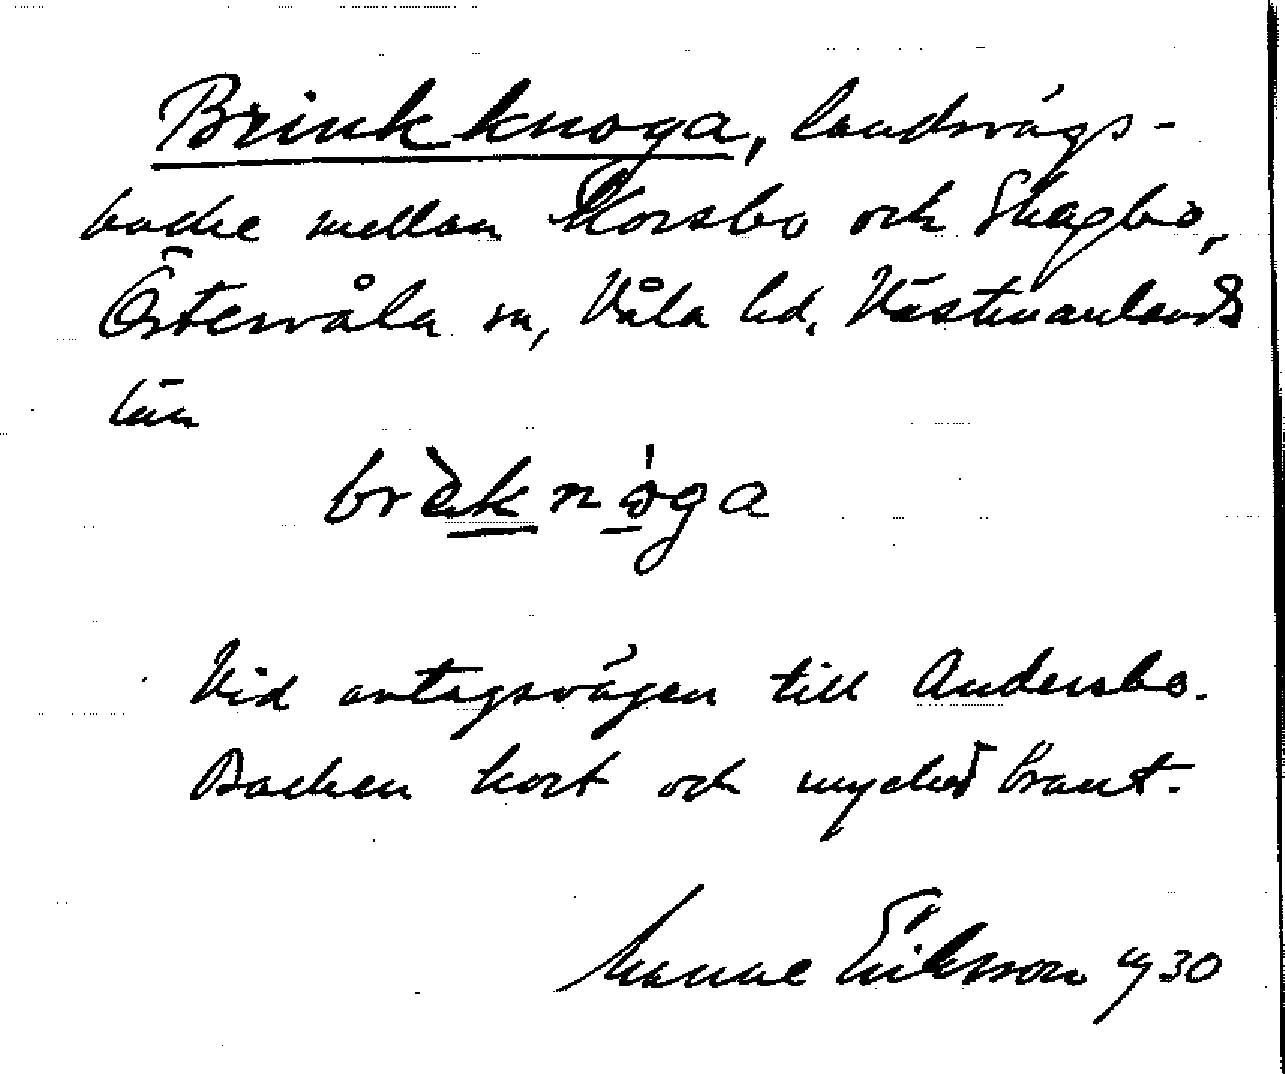 Brinkknoga, landsvägs-
backe mellan Horsbo och Skogbo,
Östervåla sn, Våla hd, Västmanlands
län
brèknöga
Vid avtagsvägen till Andersbo.
Backen kort och mycket brant.
Manne Eriksson 1930